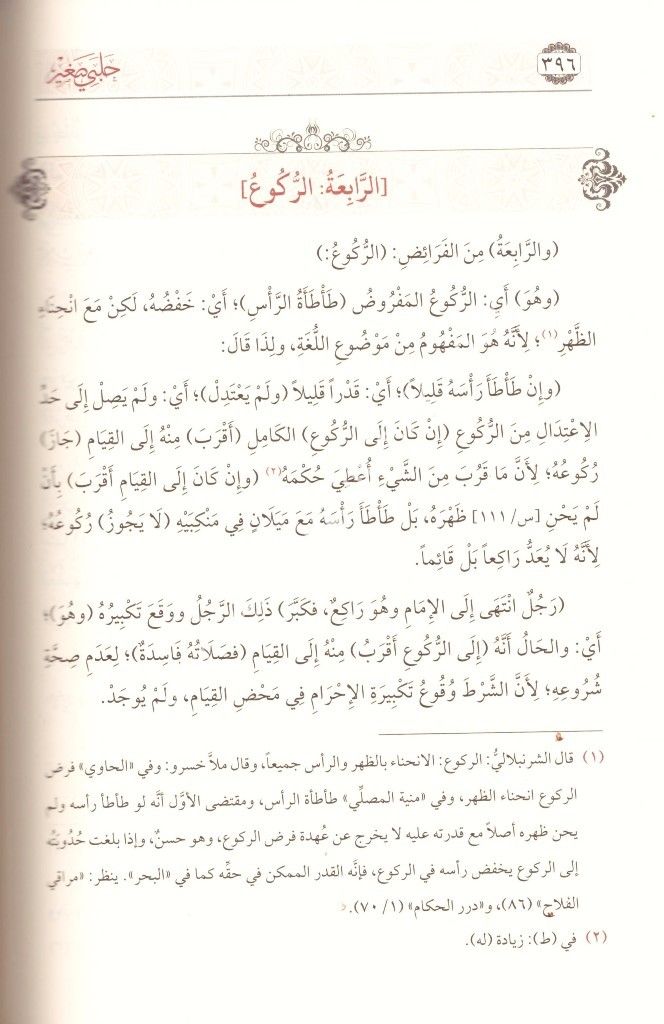 ٣٩٦
حَلَبِي صَغِير
[الرَّابِعَةُ: الرُّكُوعُ]
(والرَّابِعَةُ) مِنَ الفَرَائِضِ: (الرُّكُوعُ:)
(وهُوَ) أَيِ: الرُّكُوعُ المَفْرُوضُ (طَأْطَأَةُ الرَّأْسِ)؛ أَيْ: خَفْضُهُ، لَكِنْ مَعَ انْحِنَاءِ
الظَّهْرِ(١)؛ لِأَنَّهُ هُوَ المَفْهُومُ مِنْ مَوْضُوعِ اللُّغَةِ، ولِذَا قَالَ:
(وإِنْ طَأْطَأَ رَأْسَهُ قَلِيلاً)؛ أَيْ: قَدْراً قَلِيلاً (ولَمْ يَعْتَدِلْ)؛ أَيْ: ولَمْ يَصِلْ إِلَى حَدِّ
الِاعْتِدَالِ مِنَ الرُّكُوعِ (إِنْ كَانَ إِلَى الرُّكُوعِ) الكَامِلِ (أَقْرَبَ) مِنْهُ إِلَى القِيَامِ (جَازَ)
رُكُوعُهُ؛ لِأَنَّ مَا قَرُبَ مِنَ الشَّيْءِ أُعْطِيَ حُكْمَهُ(٢) (وإِنْ كَانَ إِلَى القِيَامِ أَقْرَبَ) بِأَنْ
لَمْ يَحْنِ [س/ ١١١] ظَهْرَهُ، بَلْ طَأْطَأَ رَأْسَهُ مَعَ مَيَلَانٍ فِي مَنْكِبَيْهِ (لَا يَجُوزُ) رُكُوعُهُ؛
لِأَنَّهُ لَا يُعَدُّ رَاكِعاً بَلْ قَائِماً.
(رَجُلٌ انْتَهَى إِلَى الإِمَامِ وهُوَ رَاكِعٌ، فكَبَّرَ) ذَلِكَ الرَّجُلُ ووَقَعَ تَكْبِيرُهُ (وهُوَ)؛
أَيْ: والحَالُ أَنَّهُ (إِلَى الرُّكُوعِ أَقْرَبُ) مِنْهُ إِلَى القِيَامِ (فصَلَاتُهُ فَاسِدَةٌ)؛ لِعَدَمِ صِحَّةِ
شُرُوعِهِ؛ لِأَنَّ الشَّرْطَ وُقُوعُ تَكْبِيرَةِ الإِحْرَامِ فِي مَحْضِ القِيَامِ، ولَمْ يُوجَدْ.
(١) قال الشرنبلاليُّ: الركوع: الانحناء بالظهر والرأس جميعاً، وقال ملاَّ خسرو: وفي «الحاوي» فرض
الركوع انحناء الظهر، وفي «منية المصلِّي» طأطأة الرأس، ومقتضى الأوَّل أنَّه لو طأطأ رأسه ولم
يحن ظهره أصلاً مع قدرته عليه لا يخرج عن عُهدة فرض الركوع، وهو حسنٌ، وإذا بلغت حُدُوبَتُه
إلى الركوع يخفض رأسه في الركوع، فإنَّه القدر الممكن في حقِّه كما في «البحر». ينظر: «مراقي
الفلاح» (٨٦)، و«درر الحكام» (١/ ٧٠).
(٢) في (ط): زيادة (له).